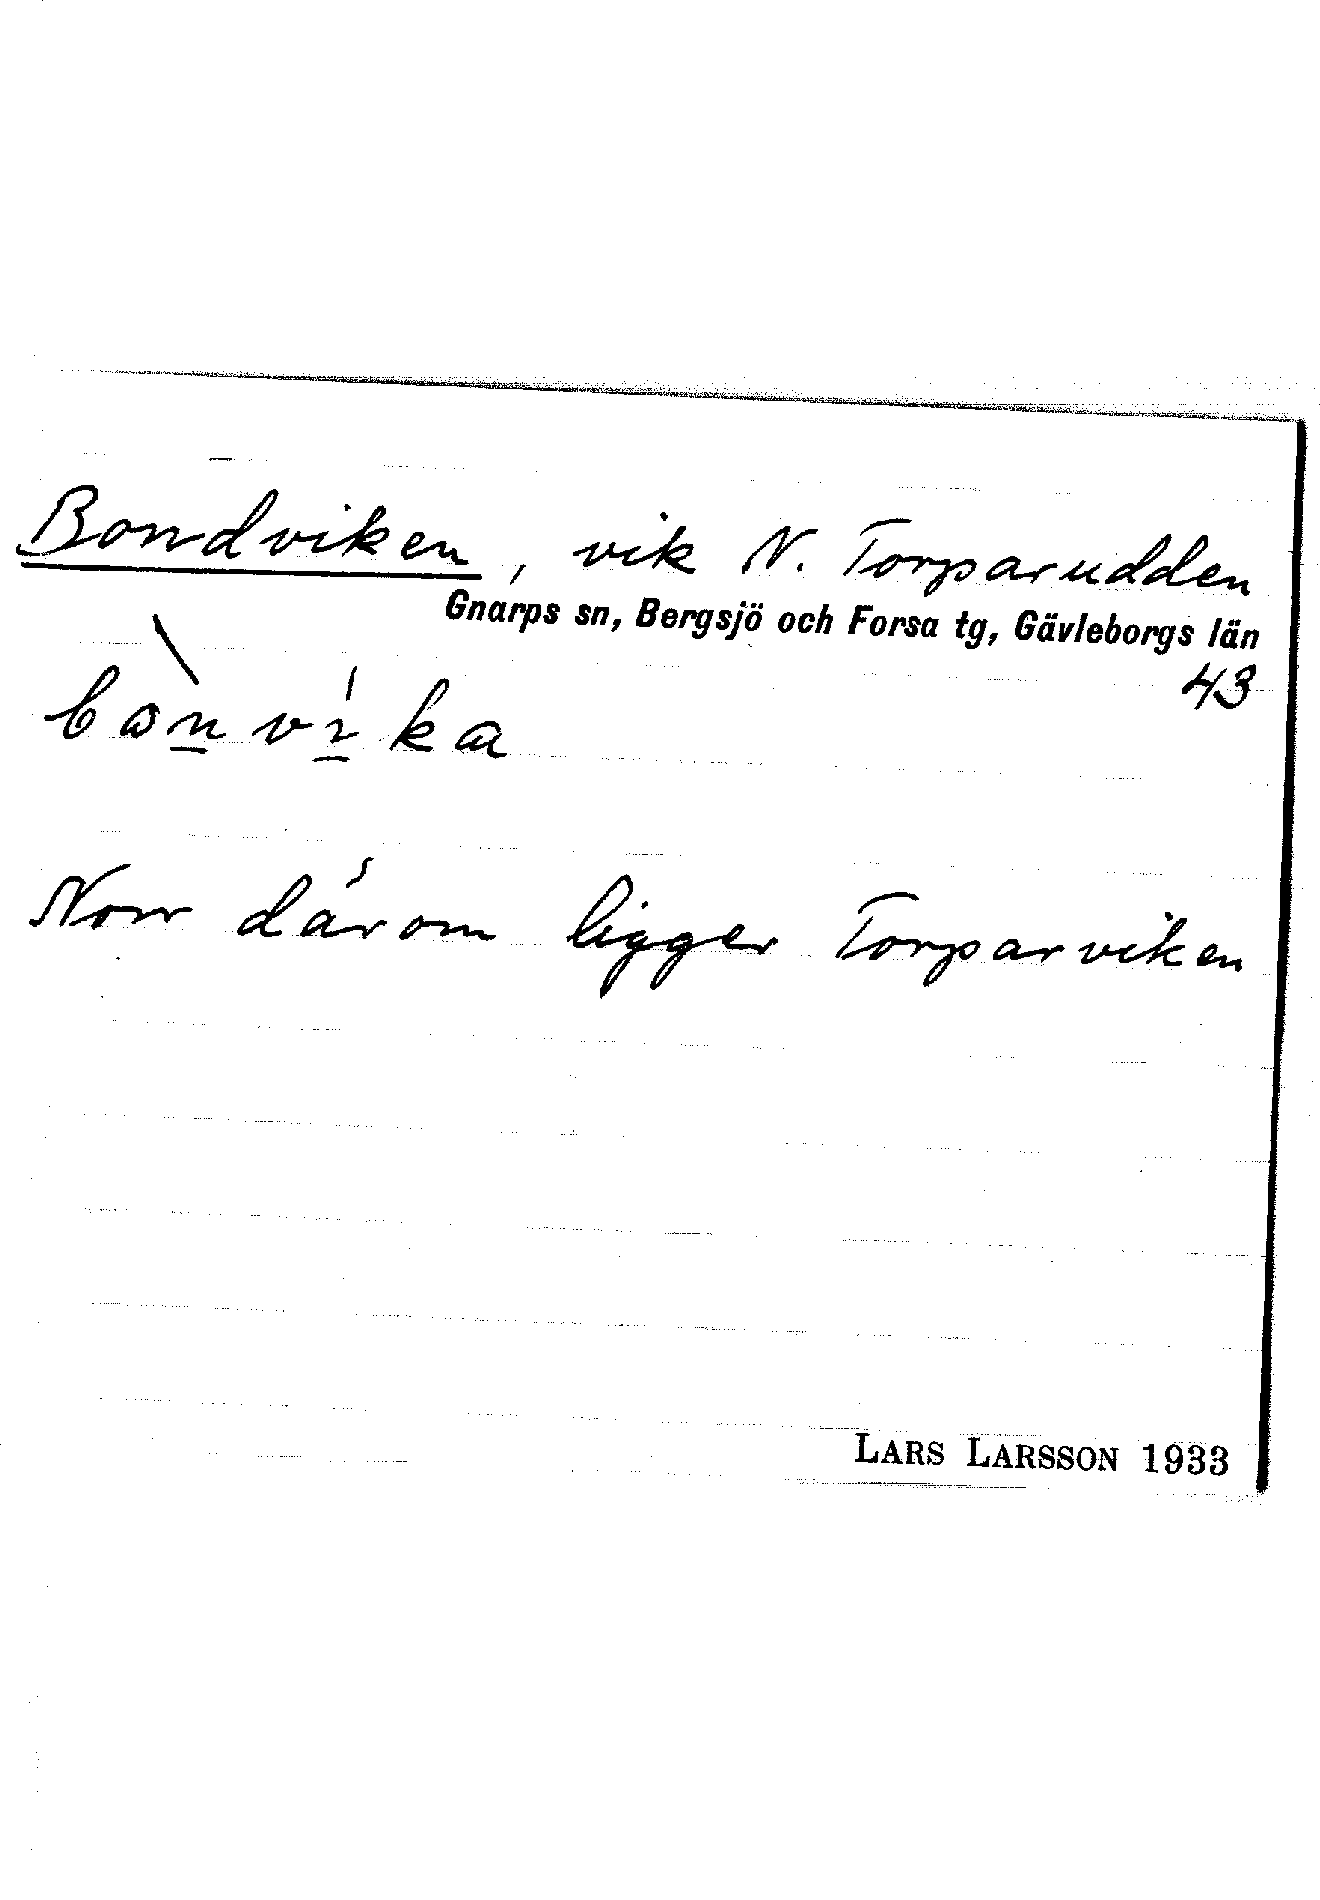 Bondviken, vik N. Torparudden
Gnarps sn, Bergsjö och Forsa tg, Gävleborgs län
43
bòn̲ví̲ka
Norr därom ligger Torparviken
LARS LARSSON 1933